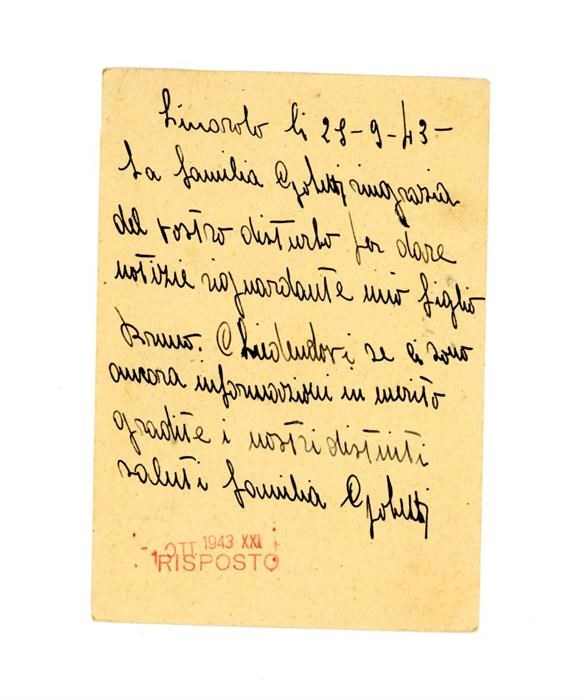 Linarolo li 28-9-43-
La familia Gobetti ringrazia
del vostro disturbo per dare
notizie riguardante mio figlio
Bruno. Chiedendovi se ci sono
ancora informazioni in merito
gradite i nostri distinti
saluti familia Gobetti
-1 OTT 1943 XXI
RISPOSTO